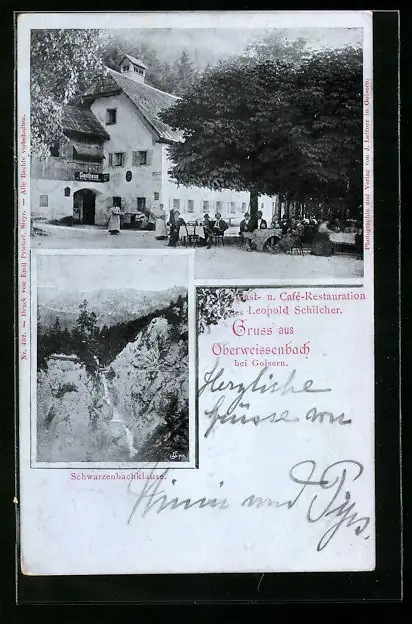 Gasthaus
Gast- u. Café-Restauration
des Leopold Schilcher.
Gruss aus
Oberweissenbach
bei Goisern.
Herzliche
Grüsse von
und
Schwarzenbachklause.
Nr. 402. — Druck von Emil Prietzel, Steyr. — Alle Rechte vorbehalten.
Photographie und Verlag von J. Lettner in Goisern.